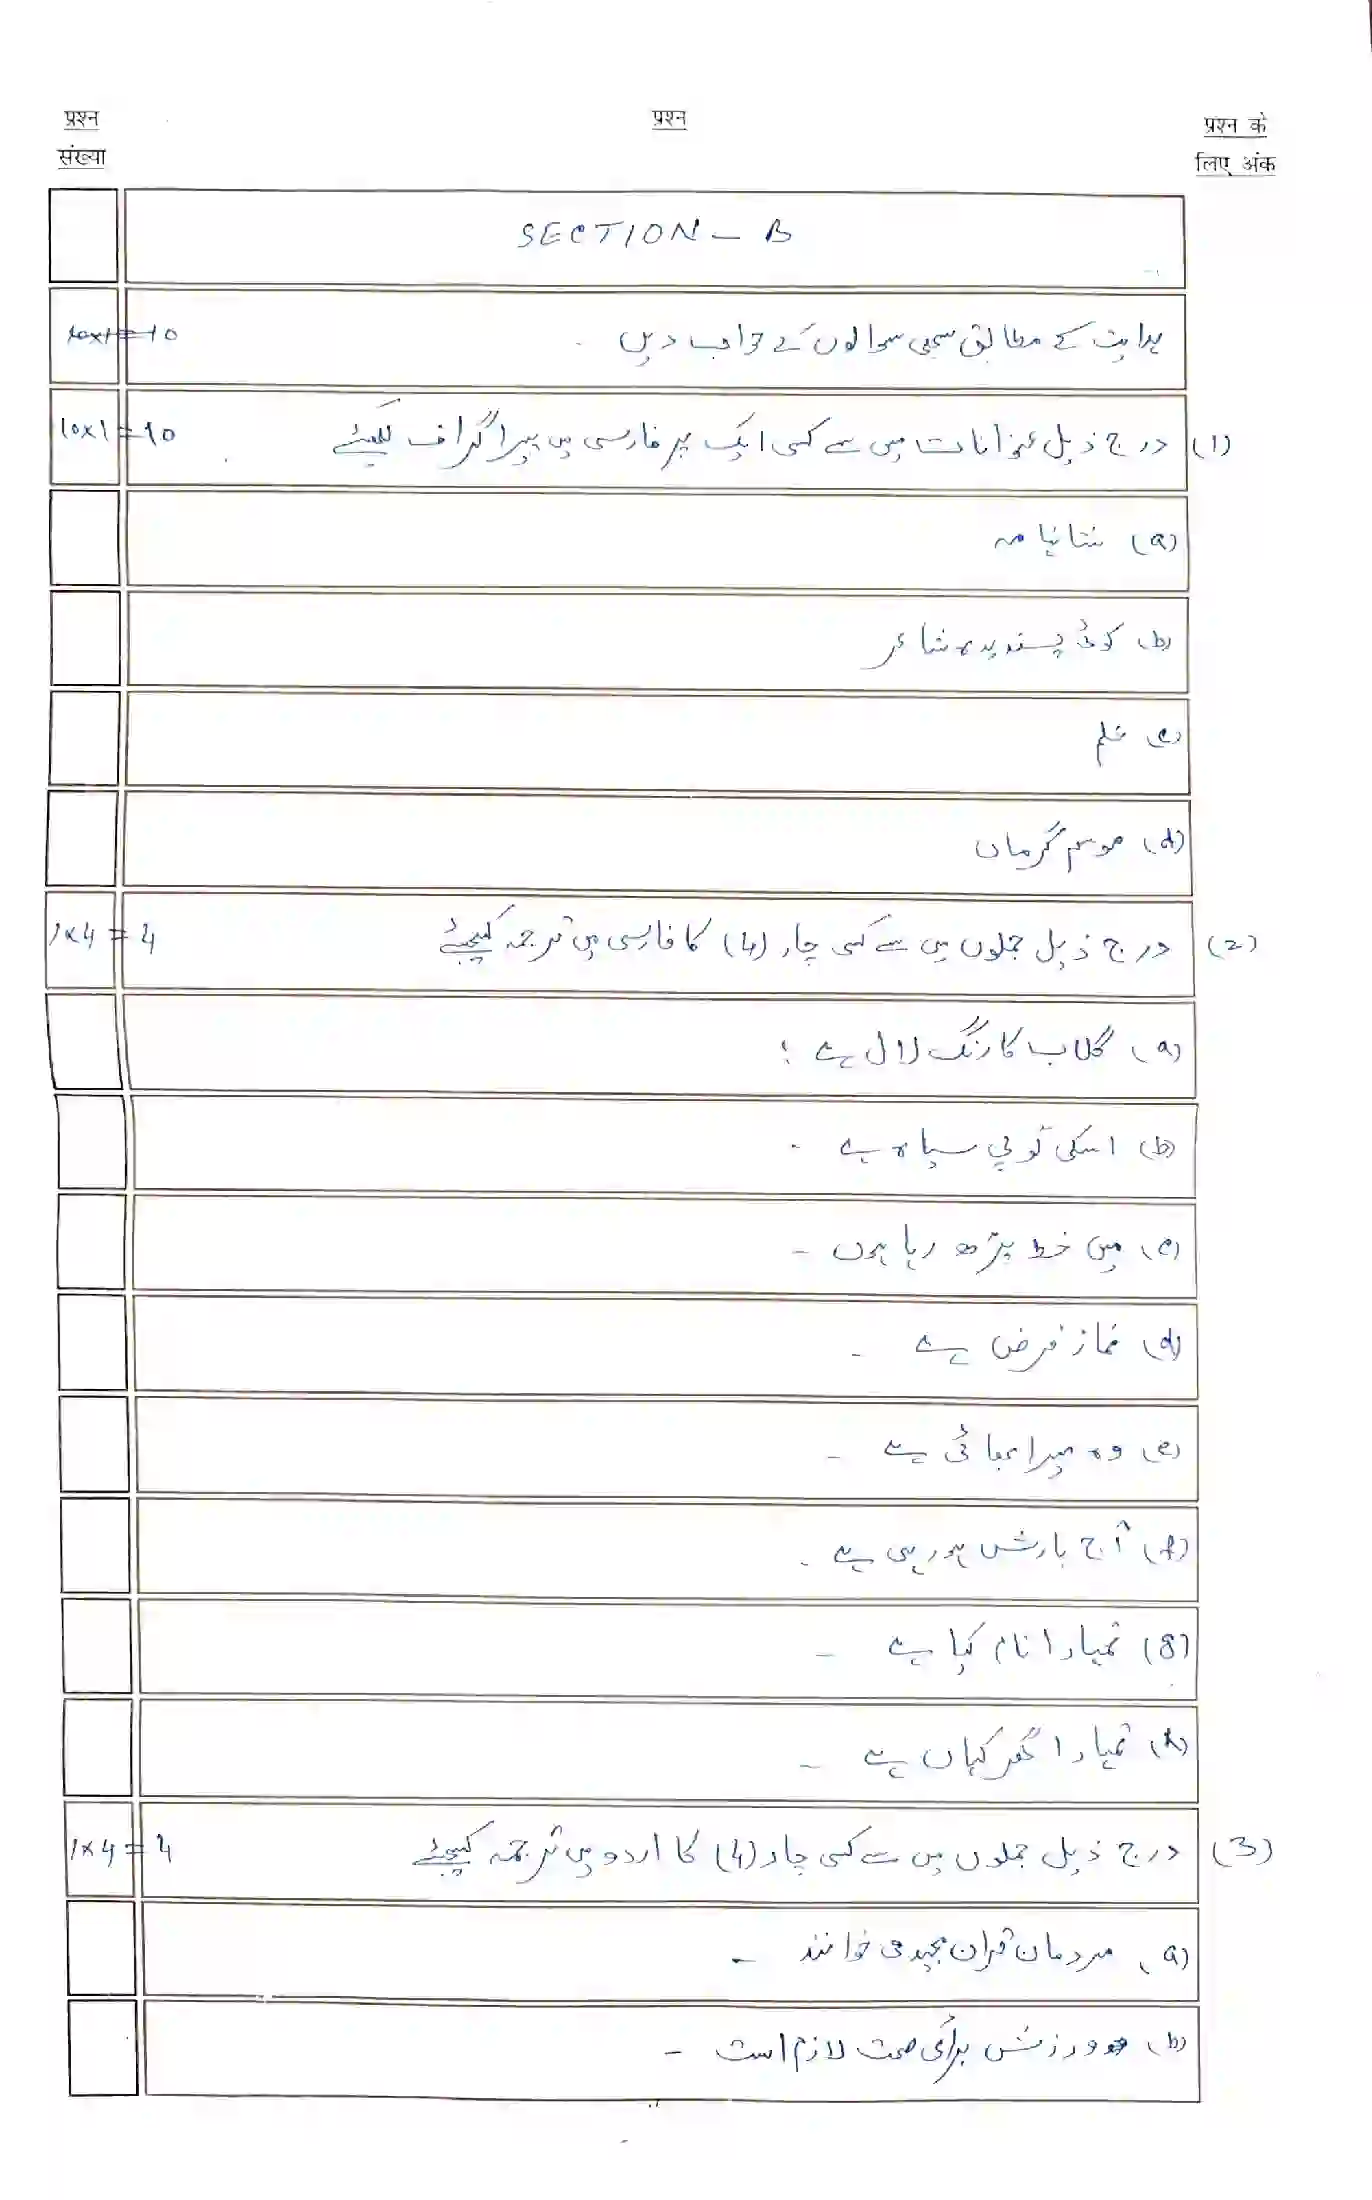 प्रश्न संख्या
प्रश्न
प्रश्न के लिए अंक
SECTION - B
ہدایت کے مطابق سبھی سوالوں کے جواب دیں۔ 10x1=10
(1) درج ذیل عنوانات میں سے کسی ایک پر فارسی میں پیراگراف لکھیئے 10x1=10
(a) شاہنامہ
(b) کوئی پسندیدہ شاعر
(c) علم
(d) موسم گرماں
(2) درج ذیل جملوں میں سے کسی چار (4) کا فارسی میں ترجمہ کیجیئے 1x4=4
(a) گلاب کا رنگ لال ہے ؛
(b) اسکی ٹوپی سیاہ ہے ۔
(c) میں خط پڑھ رہا ہوں ۔
(d) نماز فرض ہے ۔
(e) وہ میرا بھائی ہے ۔
(f) آج بارش ہو رہی ہے ۔
(g) تمہارا نام کیا ہے ۔
(h) تمہارا گھر کہاں ہے ۔
(3) درج ذیل جملوں میں سے کسی چار (4) کا اردو میں ترجمہ کیجیئے 1x4=4
(a) مردمان قرآن مجید می خوانند ۔
(b) ورزش برائی صحت لازم است ۔